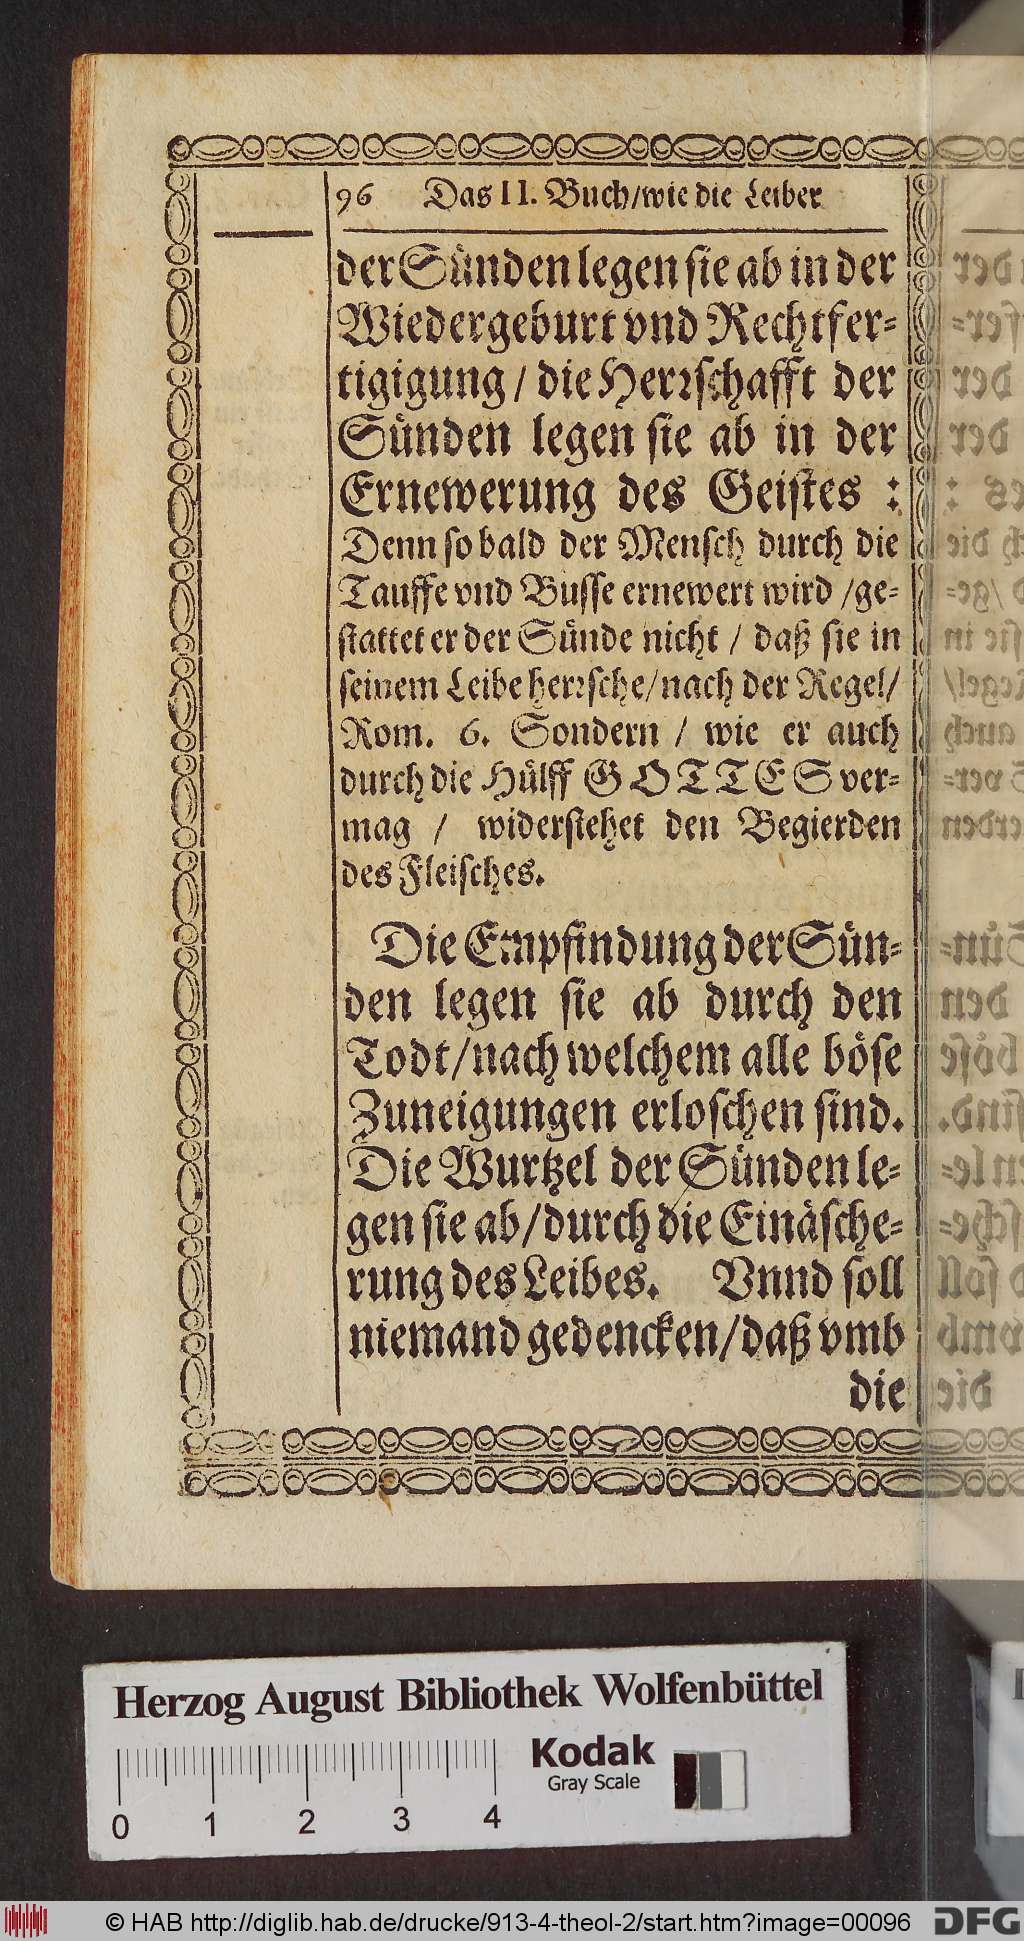 96 Das II. Buch/wie die Leiber
der Sünden legen sie ab in der
Wiedergeburt vnd Rechtfer-
tigigung / die Herrschafft der
Sünden legen sie ab in der
Ernewerung des Geistes :
Denn so bald der Mensch durch die
Tauffe vnd Busse ernewert wird /ge-
stattet er der Sünde nicht / daß sie in
seinem Leibe herrsche/nach der Regel/
Rom. 6. Sondern / wie er auch
durch die Hülff GOTTES ver-
mag / widerstehet den Begierden
des Fleisches.
Die Empfindung der Sün-
den legen sie ab durch den
Todt/nach welchem alle böse
Zuneigungen erloschen sind.
Die Wurtzel der Sünden le-
gen sie ab/durch die Einäsche-
rung des Leibes. Vnnd soll
niemand gedencken/daß vmb
die
Herzog August Bibliothek Wolfenbüttel
Kodak
Gray Scale
0 1 2 3 4
© HAB http://diglib.hab.de/drucke/913-4-theol-2/start.htm?image=00096
DFG